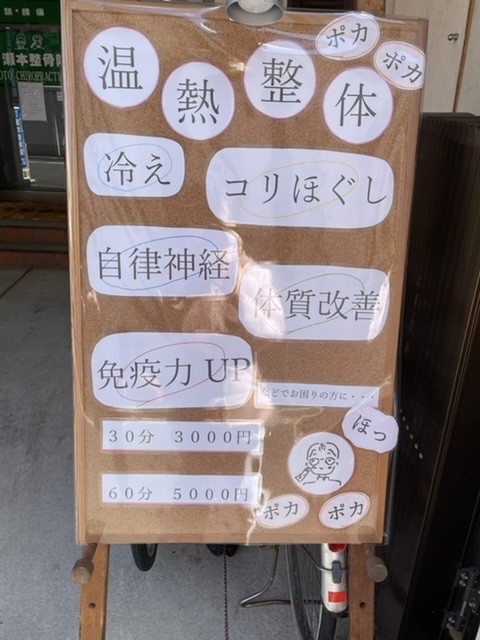 瀬本整骨院
ポカ
ポカ
温熱整体
冷え
コリほぐし
自律神経
体質改善
免疫力UP
などでお困りの方に・・・
30分 3000円
60分 5000円
ほっ
ポカ
ポカ